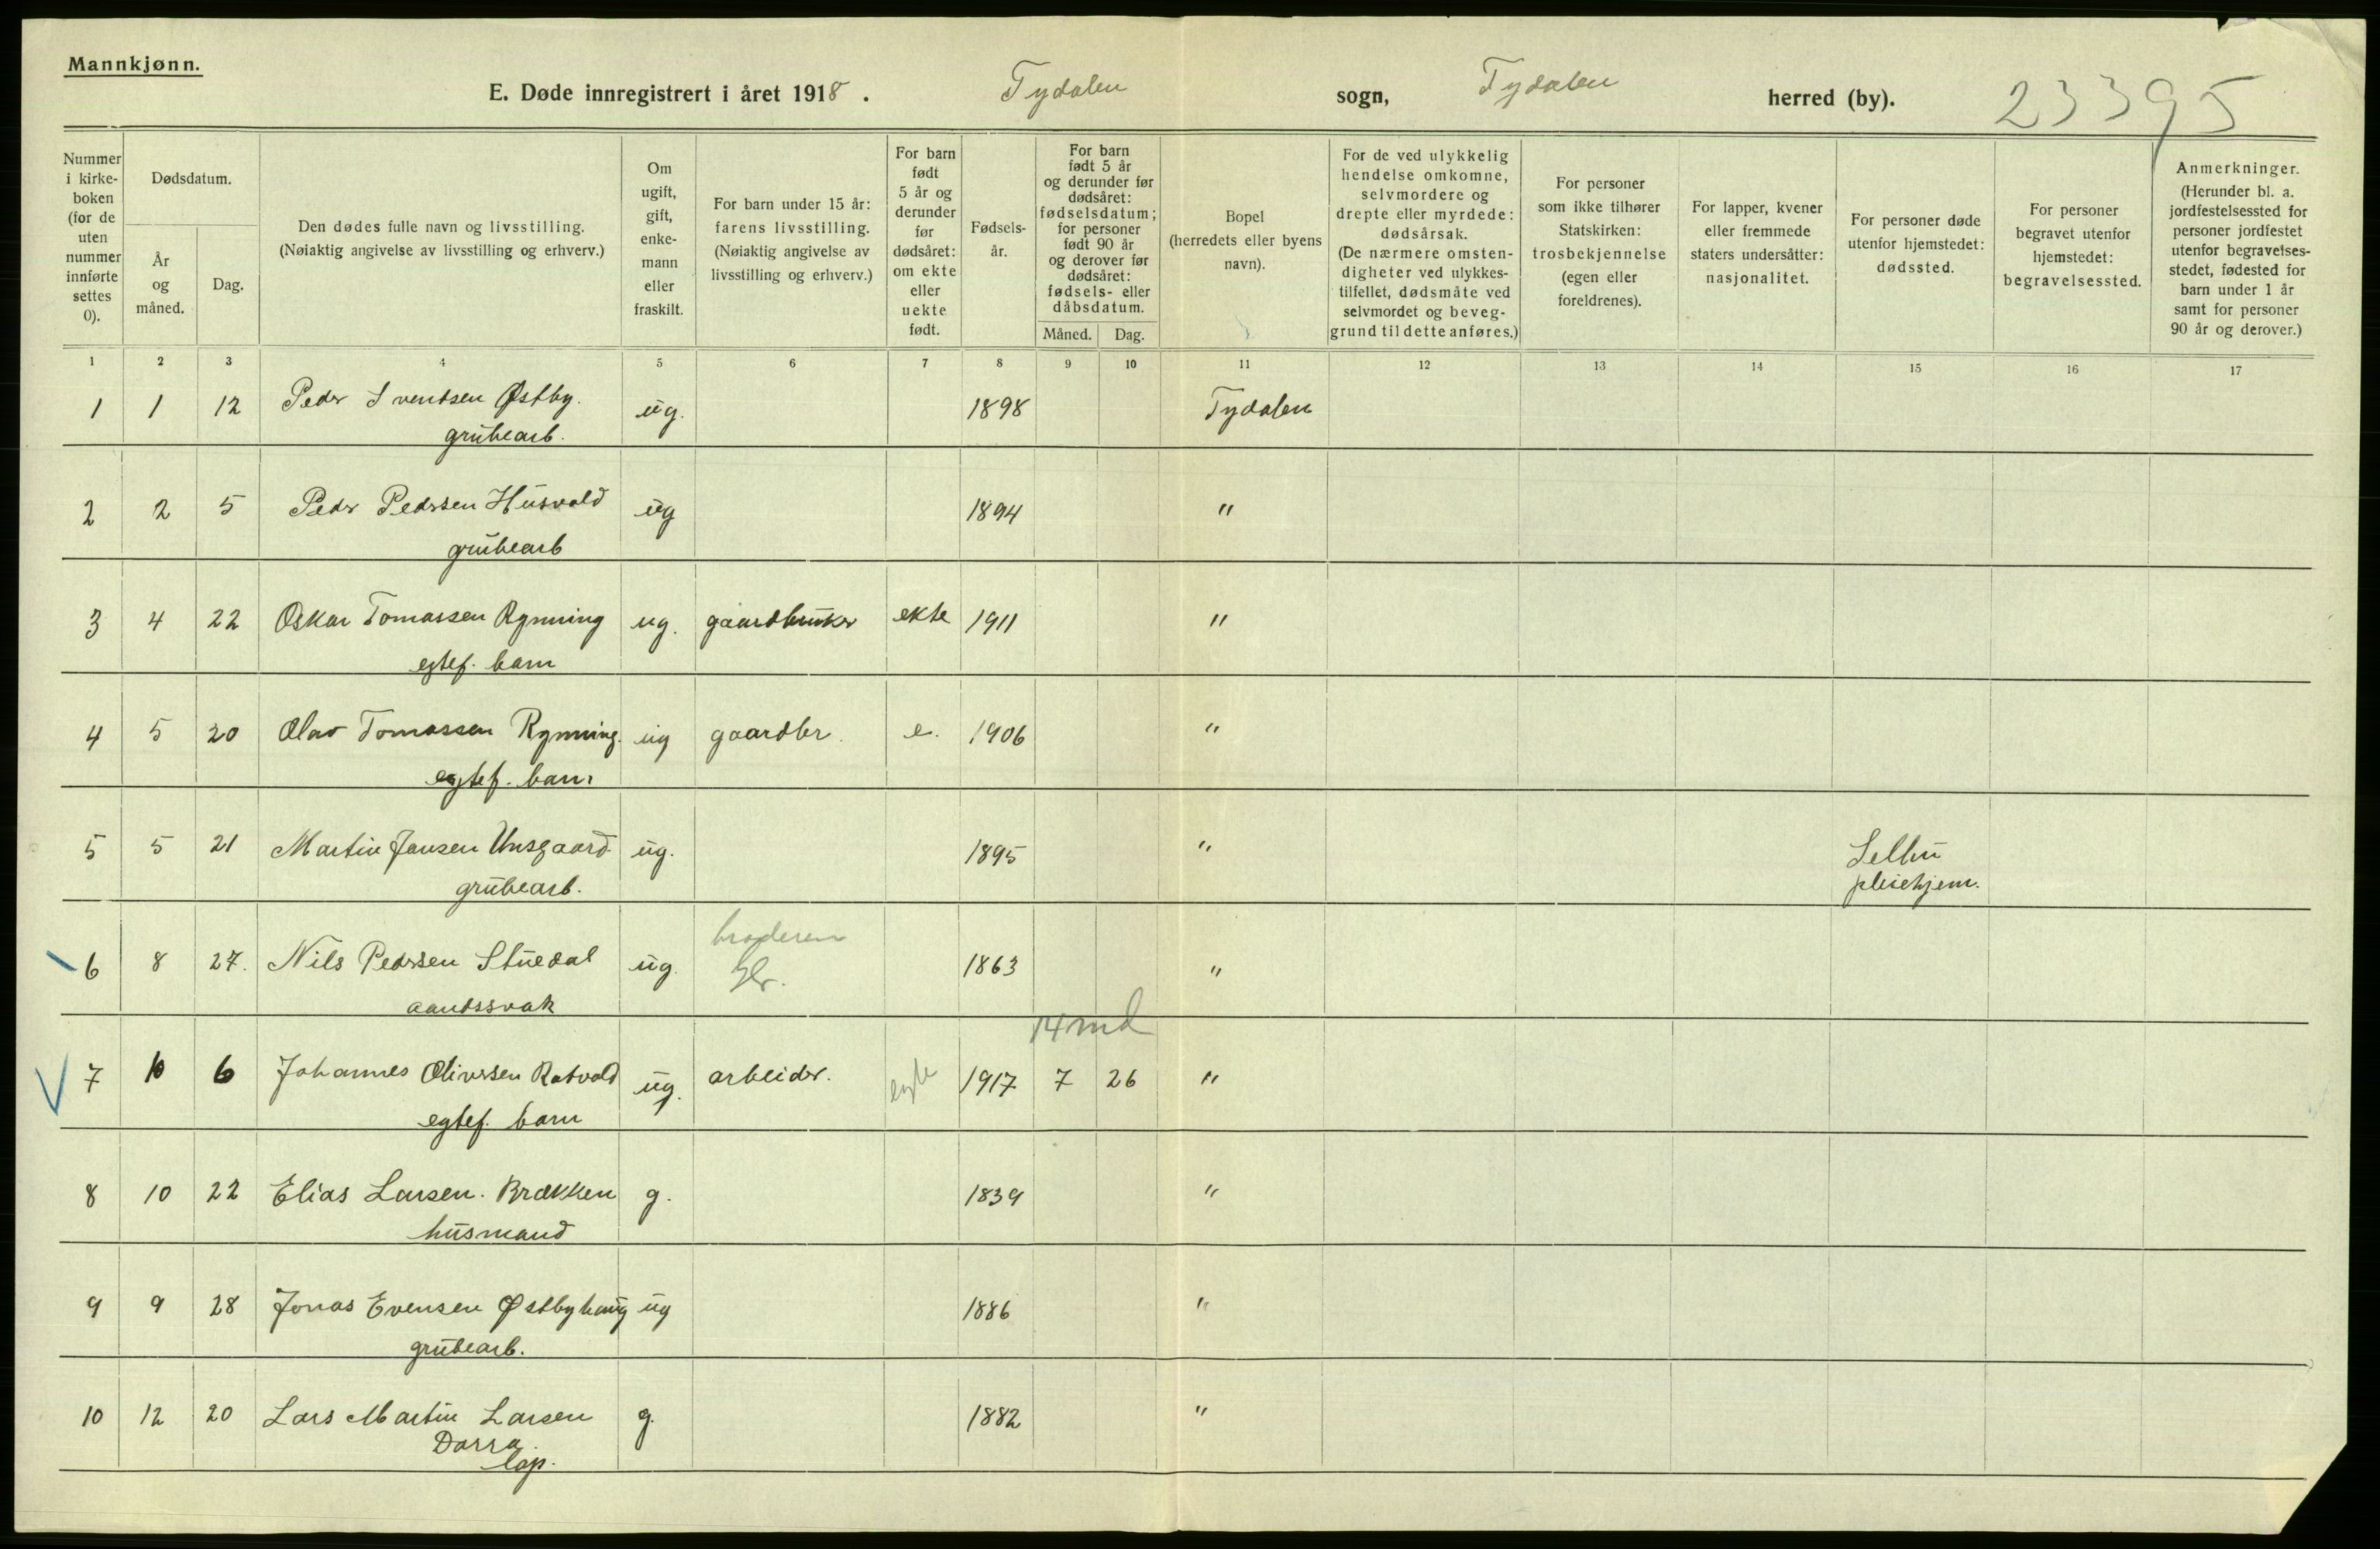 Mannkjønn.
E. Døde innregistrert i året 1918 . Tydalen sogn, Tydalen herred (by). 23395
Nummer i kirkeboken (for de uten nummer innførte settes 0).
Dødsdatum.
År og måned.
Dag.
Den dødes fulle navn og livsstilling.
(Nøiaktig angivelse av livsstilling og erhverv.)
Om ugift, gift, enkemann eller fraskilt.
For barn under 15 år: farens livsstilling. (Nøiaktig angivelse av livsstilling og erhverv.)
For barn født 5 år og derunder før dødsåret: om ekte eller uekte født.
Fødselsår.
For barn født 5 år og derunder før dødsåret: fødselsdatum; for personer født 90 år og derover før dødsåret: fødsels- eller dåbsdatum.
Måned. Dag.
Bopel (herredets eller byens navn).
For de ved ulykkelig hendelse omkomne, selvmordere og drepte eller myrdede: dødsårsak. (De nærmere omstendigheter ved ulykkestilfellet, dødsmåte ved selvmordet og beveggrund til dette anføres.)
For personer som ikke tilhører Statskirken: trosbekjennelse (egen eller foreldrenes).
For lapper, kvener eller fremmede staters undersåtter: nasjonalitet.
For personer døde utenfor hjemstedet: dødssted.
For personer begravet utenfor hjemstedet: begravelsessted.
Anmerkninger. (Herunder bl. a. jordfestelsessted for personer jordfestet utenfor begravelsesstedet, fødested for barn under 1 år samt for personer 90 år og derover.)
1 2 3 4 5 6 7 8 9 10 11 12 13 14 15 16 17
1 1 12 Peder Sventsen Østby. ug. 1898 Tydalen
grubearb.
2 2 5 Peder Pedersen Husvold ug 1894 "
grubearb
3 4 22 Oskar Tomassen Rynning ug. gaardbruker ekte 1911 "
egtef. barn
4 5 20 Olav Tomassen Rynning. ug gaardbr. e. 1906 "
egtef. barn
5 5 21 Martin Jansen Unsgaard. ug. 1895 " Selbu
grubearb. pleiehjem.
broderen
6 8 27. Nils Pedersen Stuedal ug. gbr. 1863 "
aandssvak
14 md
7 10 6 Johannes Oliversen Rotvold ug. arbeider. egte 1917 7 26 "
egtef. barn
8 10 22 Elias Larsen. Brækken g. 1839 "
husmand
9 9 28 Jonas Evensen Østbyhaug ug 1886 "
grubearb.
10 12 20 Lars Martin Larsen g. 1882 "
Dorra.
lap.